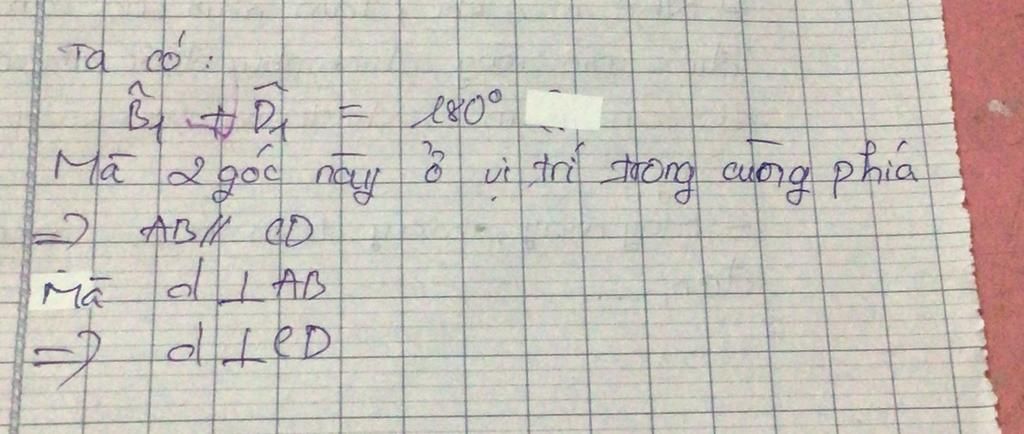 Ta có:
B̂₁ + D̂₁ = 180°
Mà 2 góc này ở vị trí trong cùng phía
=> AB // CD
Mà d ⊥ AB
=> d ⊥ CD